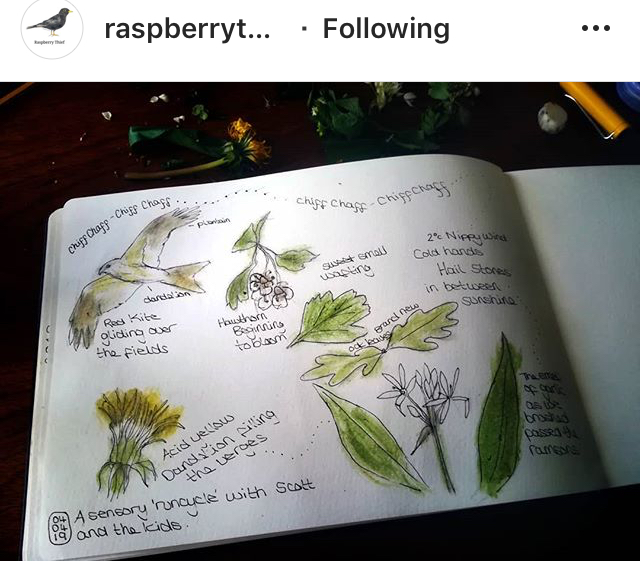 raspberryt... · Following ...
Raspberry Thief
Chiff Chaff - Chiff Chaff
Chiff Chaff - Chiff Chaff
plantain
dandelion
Red Kite
gliding over
the fields
Hawthorn
Beginning
to bloom
sweet smell
wafting
2°c Nippy wind
Cold hands
Hail Stones
in between
sunshine
oak leaves brand new
Acid yellow
Dandelion filling
the verges
The smell
of garlic
as we
brushed
passed the
ramsons
04
04
19
A sensory 'runcycle' with Scott
and the kids.